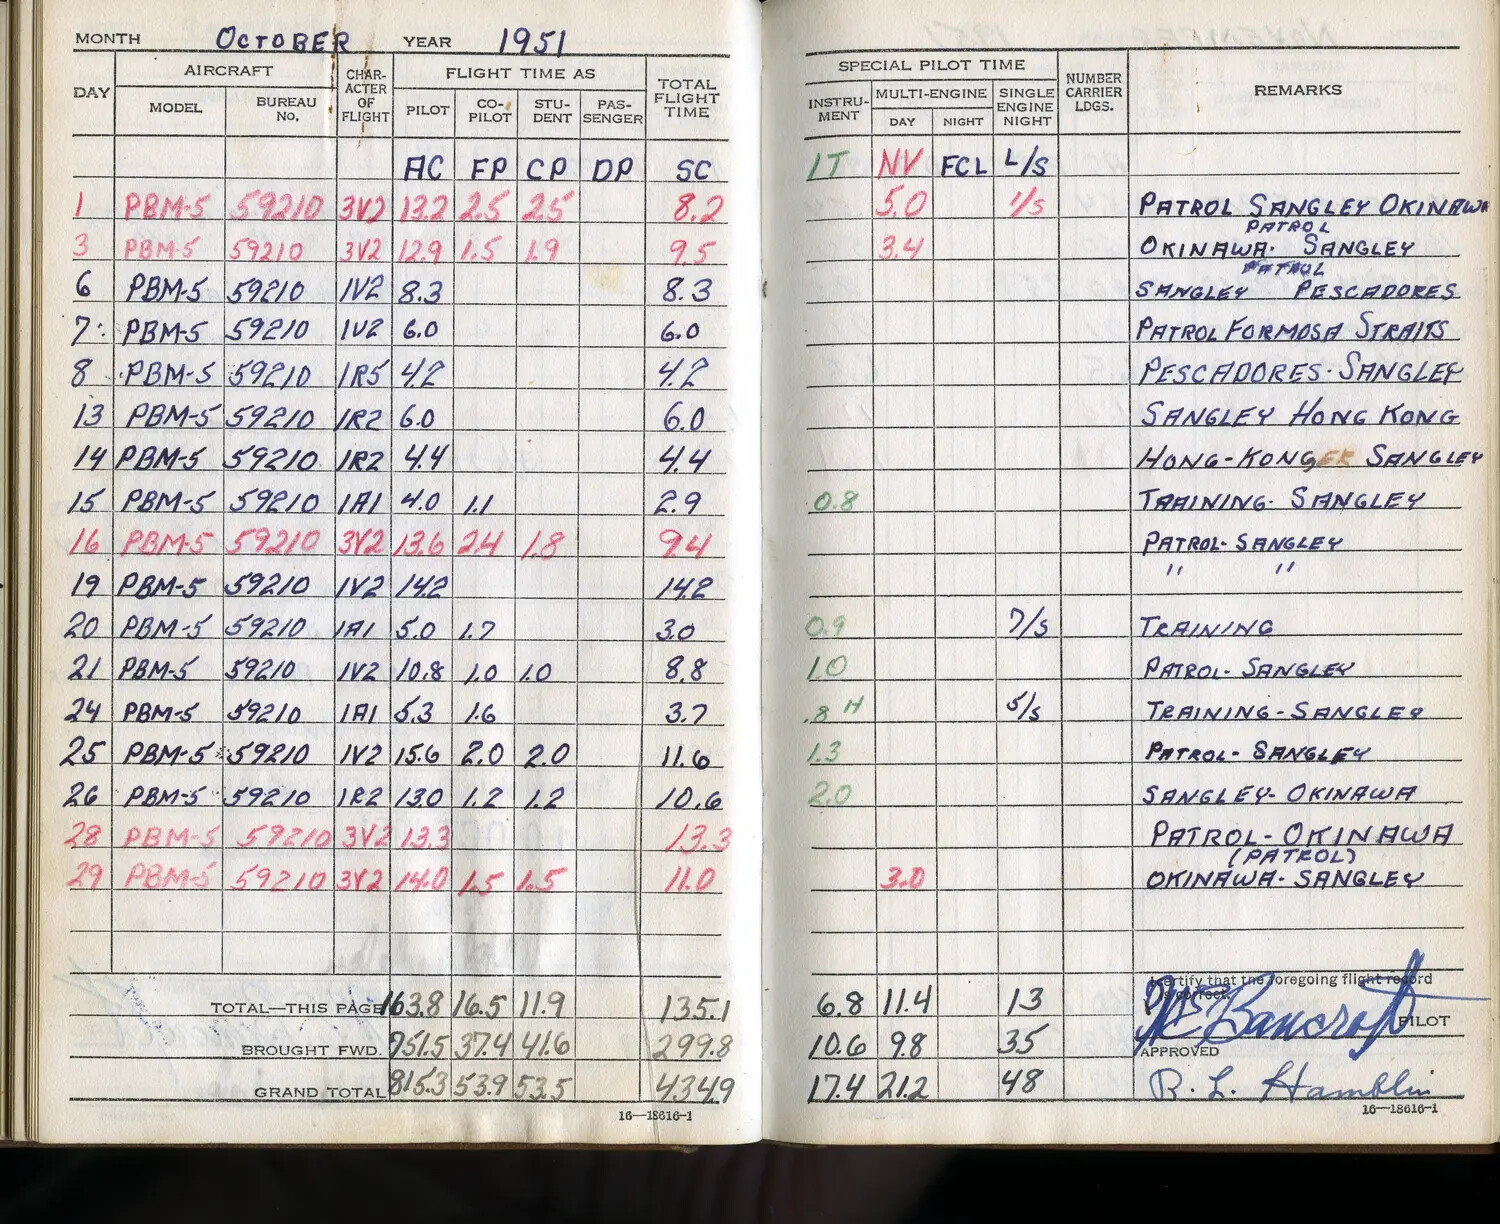 MONTH OCTOBER YEAR 1951
DAY AIRCRAFT CHAR-ACTER OF FLIGHT FLIGHT TIME AS TOTAL FLIGHT TIME SPECIAL PILOT TIME NUMBER CARRIER LDGS. REMARKS
MODEL BUREAU No. PILOT CO-PILOT STU-DENT PAS-SENGER INSTRU-MENT MULTI-ENGINE SINGLE ENGINE NIGHT
DAY NIGHT
AC FP CP DP SC IT NV FCL L/S
1 PBM-5 59210 3V2 13.2 2.5 2.5 8.2 5.0 1/S PATROL SANGLEY OKINAWA
PATROL
3 PBM-5 59210 3V2 12.9 1.5 1.9 9.5 3.4 OKINAWA- SANGLEY
PATROL
6 PBM-5 59210 1V2 8.3 8.3 SANGLEY PESCADORES
7 PBM-5 59210 1V2 6.0 6.0 PATROL FORMOSA STRAITS
8 PBM-5 59210 1R5 4.2 4.2 PESCADORES-SANGLEY
13 PBM-5 59210 1R2 6.0 6.0 SANGLEY HONG KONG
14 PBM-5 59210 1R2 4.4 4.4 HONG-KONG SANGLEY
15 PBM-5 59210 1A1 4.0 1.1 2.9 0.8 TRAINING- SANGLEY
16 PBM-5 59210 3V2 13.6 2.4 1.8 9.4 PATROL- SANGLEY
19 PBM-5 59210 1V2 14.2 14.2 " "
20 PBM-5 59210 1A1 5.0 1.7 3.0 0.9 7/S TRAINING
21 PBM-5 59210 1V2 10.8 1.0 1.0 8.8 1.0 PATROL- SANGLEY
24 PBM-5 59210 1A1 5.3 1.6 3.7 .8 H 5/S TRAINING-SANGLEY
25 PBM-5 59210 1V2 15.6 2.0 2.0 11.6 1.3 PATROL- SANGLEY
26 PBM-5 59210 1R2 13.0 1.2 1.2 10.6 2.0 SANGLEY- OKINAWA
28 PBM-5 59210 3V2 13.3 13.3 PATROL- OKINAWA
(PATROL)
29 PBM-5 59210 3V2 14.0 1.5 1.5 11.0 3.0 OKINAWA- SANGLEY
I certify that the foregoing flight record is correct.
TOTAL—THIS PAGE 163.8 16.5 11.9 135.1 6.8 11.4 13 Bancroft PILOT
BROUGHT FWD. 751.5 37.4 41.6 299.8 10.6 9.8 35 APPROVED
GRAND TOTAL 815.3 53.9 53.5 434.9 17.4 21.2 48 R. L. Hamblin
16—18616-1 16—18616-1